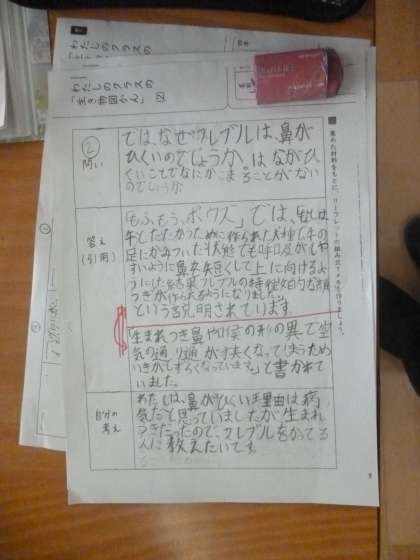 わたしのクラスの
「生き物図かん」②
わたしのクラスの
■集めた材料をもとに、リーフレットの組み立てメモを作りましょう。
②
問い
では、なぜフレブルは、鼻が
ひくいのでしょうか、は、ながひ
くいことでなにかこまることがない
のでしょうか
答え
(引用)
「もふもう,ボウズ」では、「昔は
牛とたたかうために作られた犬種で牛の
足にかみついた状態でも呼吸がしや
すいように鼻を短くして上に向けるよ
うにした結果フレブルの特徴的な顔
つきが作られるようになりました。」
という説明されています
「生まれつき鼻や口侯の形の異で空
気の通り道がす大くなってしまうため
いきがしずらくなっています。」と書かれて
いました。
自分の
考え
わたしは、鼻がひくい理由は病
気だと思っていましたが生まれ
つきだったので、フレブルをかってる
人に教えたいです。